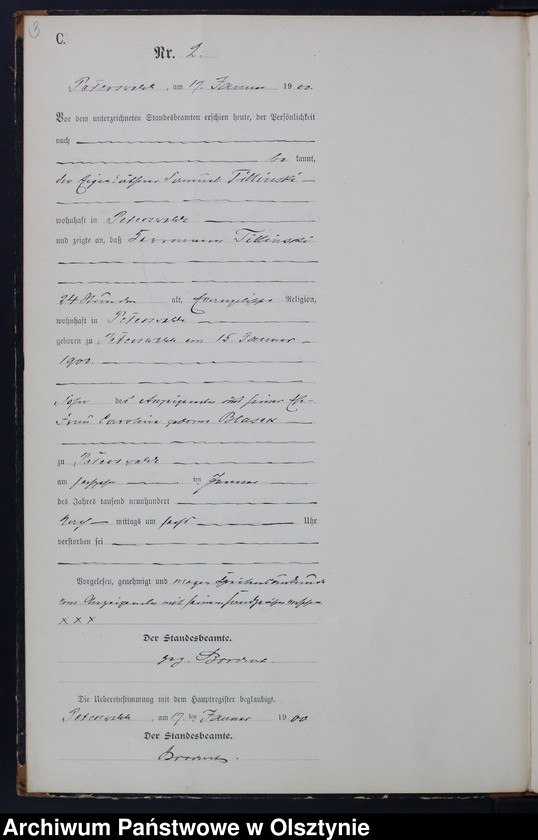 3
C.
Nr. 2.
Peterswalde, am 17. Januar 1900.
Vor dem unterzeichneten Standesbeamten erschien heute, der Persönlichkeit
nach
be kannt,
der Eigenkäthner Samuel
wohnhaft in Peterswalde
und zeigte an, daß Herrmann
24 Stunden alt, Evangelischer Religion,
wohnhaft in Peterswalde
geboren zu Peterswalde am 15. Januar
1900.
Sohn des Anzeigenden und seiner Ehe-
frau Caroline geborne Blasek
zu Peterswalde
am sechszehnten Januar
des Jahres tausend neunhundert
Nach mittags um sechs Uhr
verstorben sei
Vorgelesen, genehmigt und wegen
vom Anzeigenden mit seinem Handzeichen versehen
x x x
Der Standesbeamte.
gez.
Die Uebereinstimmung mit dem Hauptregister beglaubigt.
Peterswalde, am 17. ten Januar 1900
Der Standesbeamte.
Archiwum Państwowe w Olsztynie